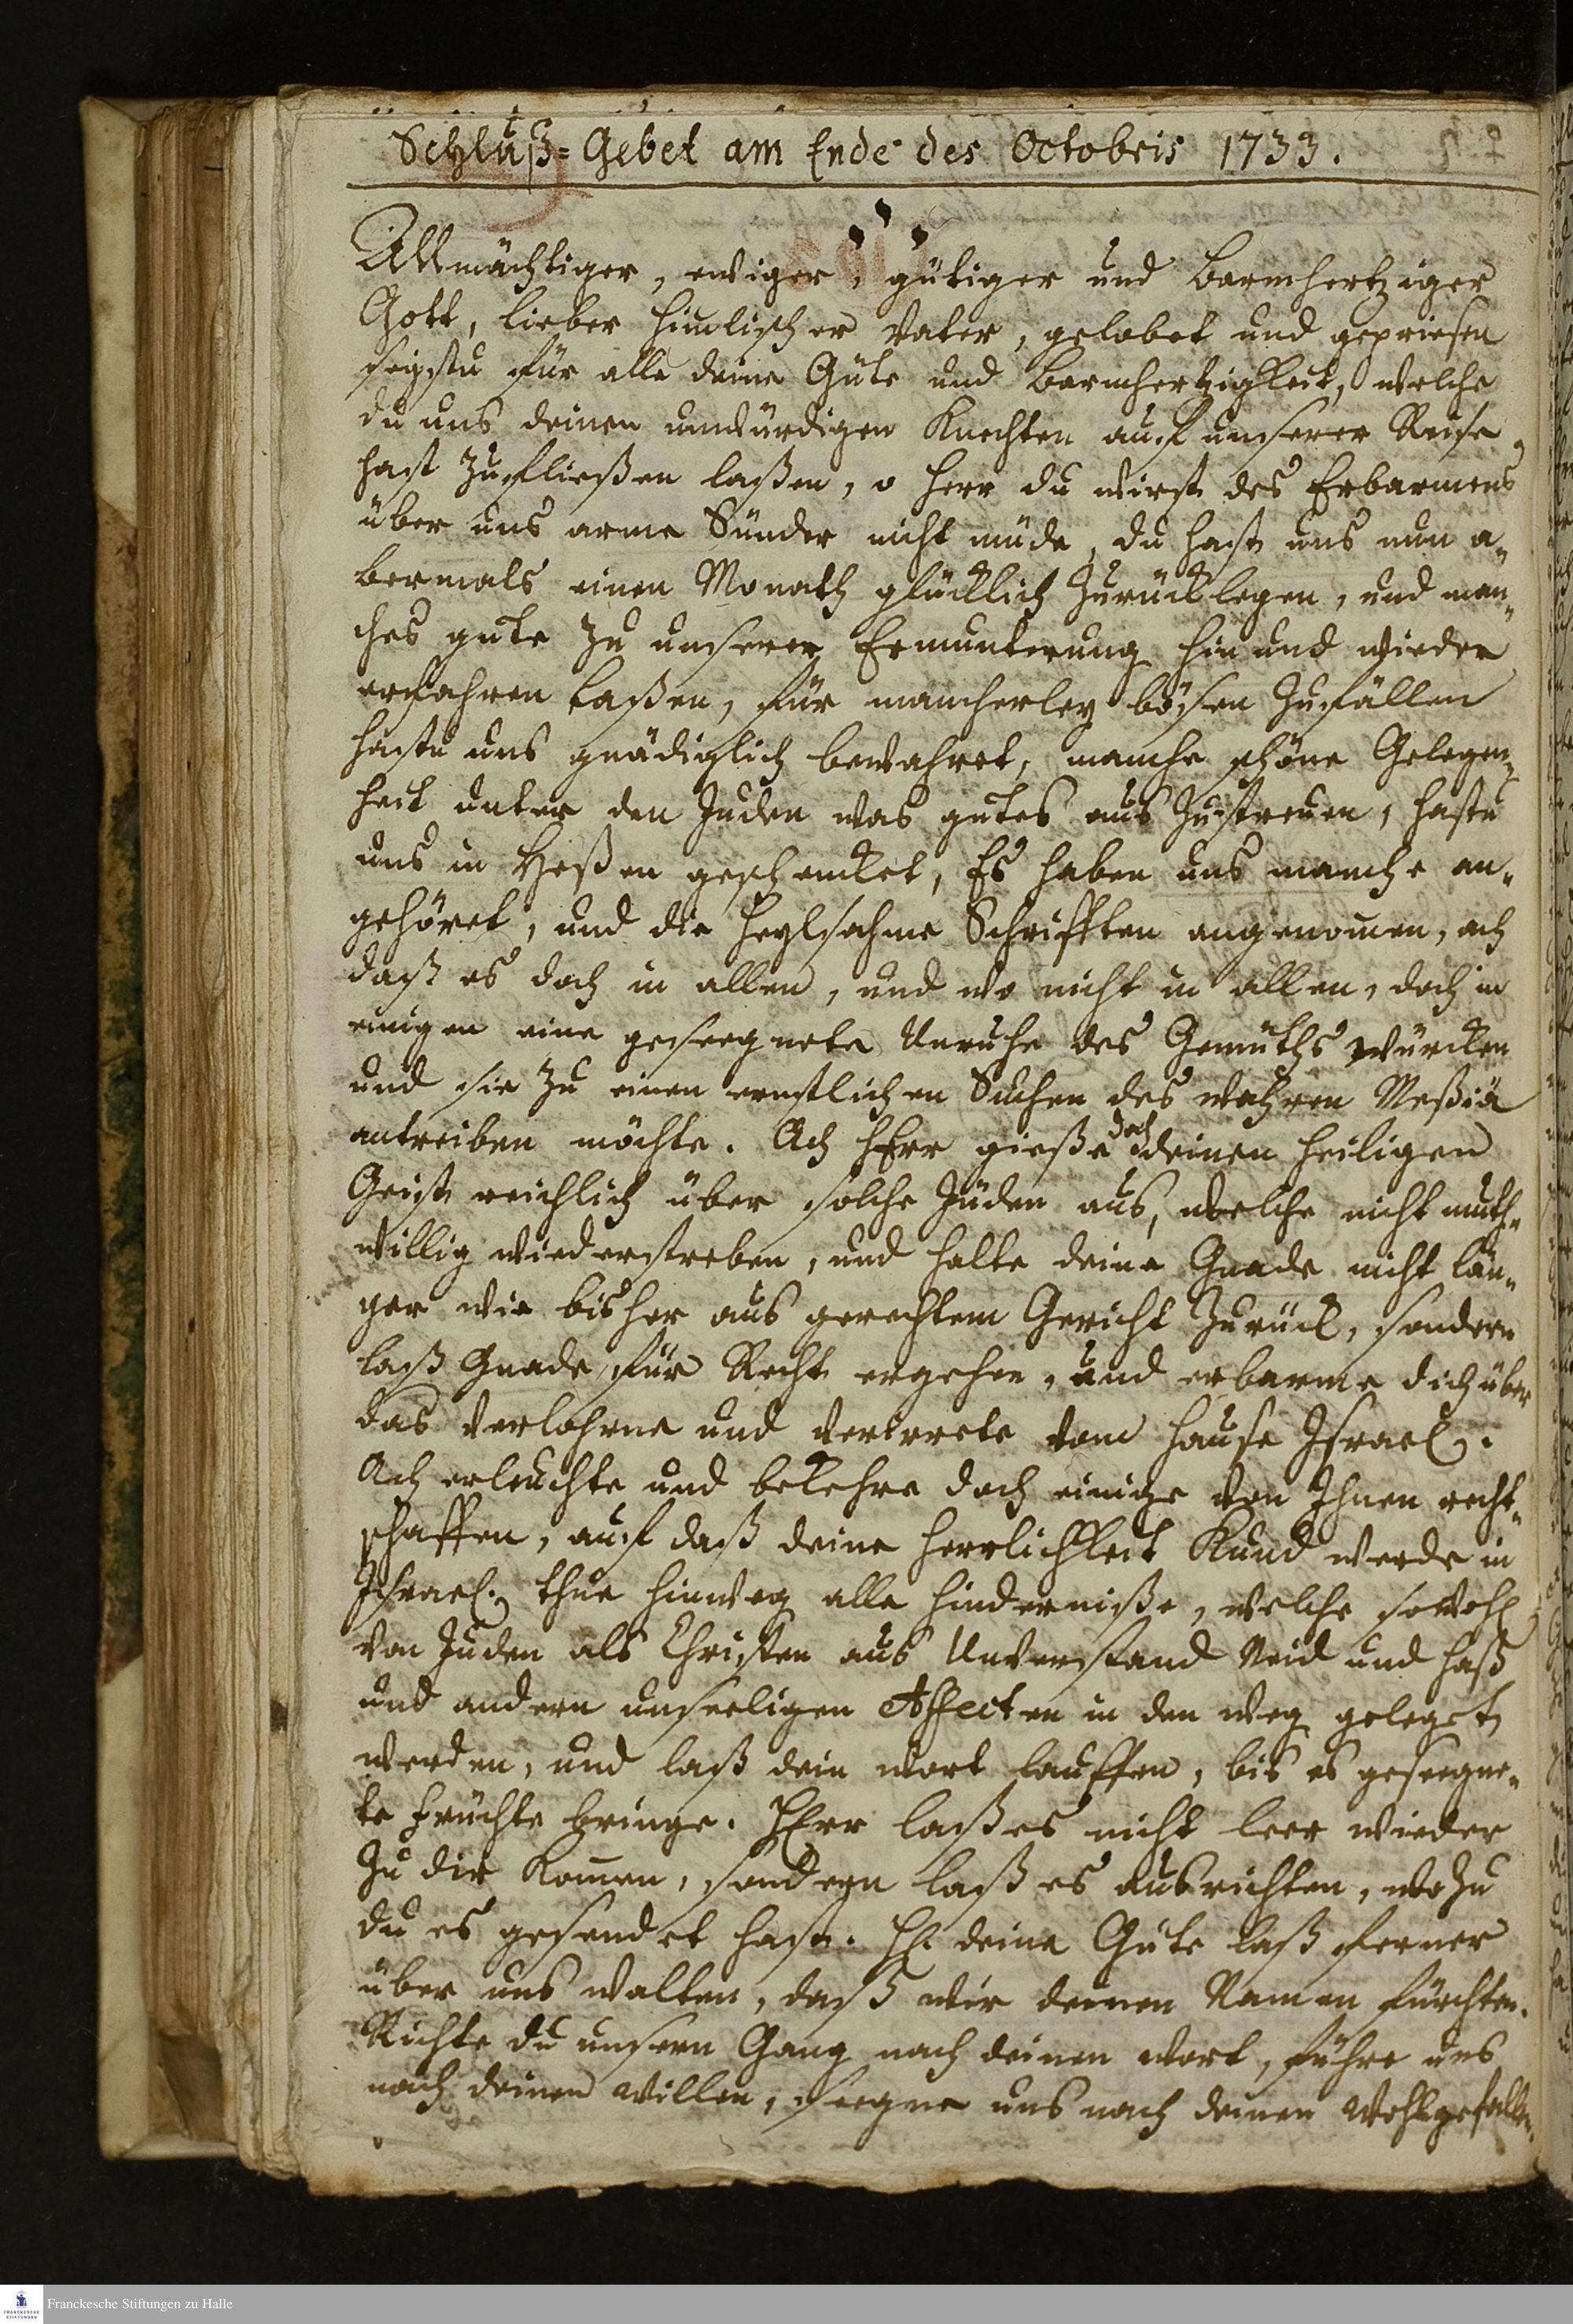 Schluß=Gebet am Ende des Octobris 1733.
Allmächtiger, ewiger, gütiger und barmhertziger
Gott, lieber himlischer Vater, gelobet und gepriesen
seystu für alle deine Güte und Barmhertzigkeit, welche
du uns deinen unwürdigen Knechten auf unserer Reise,
hast zufließen laßen, o Herr du wirst des Erbarmens
über uns arme Sünder nicht müde, du hast uns nun a„
bermals einen Monath glücklich zurücklegen, und man„
ches gute zu unserer Ermunterung hin und wieder
erfahren laßen, für mancherley bösen Zufällen
hastu uns gnädiglich bewahret, manche schöne Gelegen„
heit unter den Juden was gutes aus zustreuen, hastu
uns in Heßen geschencket, Es haben uns manche an„
gehöret, und die heylsahme Schrifften angenom̄en, ach
daß es doch in allen, und wo nicht in allen, doch in
einigen eine geseegnete Unruhe des Gemüths würcken
und sie zu einen ernstlichen Suchen des wahren Meßiä
antreiben möchte. Ach HErr gieße doch deinen heiligen
Geist reichlich über solche Jüden aus, welche nicht muth„
willig wiederstreben, und halte deine Gnade nicht län„
ger wie bisher aus gerechtem Gericht zurück, sondern
laß Gnade für Recht ergehen, und erbarme dich über
das verlohrne und verirrete vom Hause Israel.
Ach erleuchte und bekehre doch einige von Ihnen recht„
schaffen, auf daß deine Herrlichkeit Kund werde in
Israel. thue hinweg alle Hinderniße, welche sowohl
von Juden als Christen aus Unverstand Neid und Haß
und andern unseeligen Affecten in den Weg gelegt
werden, und laß dein Wort lauffen, bis es geseegne„
te Früchte bringe. HErr laß es nicht leer wieder
zu dir kom̄en, sondern laß es ausrichten, wozu
du es gesendet hast. H. deine Güte laß ferner
über uns walten, daß wir deinen Namen fürchten.
Richte du unsern Gang nach deinen Wort, führe uns
nach deinen Willen, seegne uns nach deinen Wohlgefallen.
Franckesche Stiftungen zu Halle